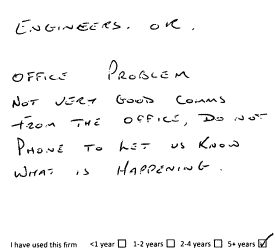 ENGINEERS. OK.
OFFICE PROBLEM
NOT VERY GOOD COMMS
FROM THE OFFICE, DO NOT
PHONE TO LET US KNOW
WHAT IS HAPPENING.
I have used this firm <1 year ☐ 1-2 years ☐ 2-4 years ☐ 5+ years ☑